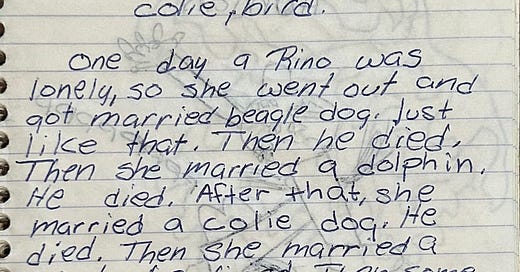 colie, bird.
One day a Rino was
lonely, so she went out and
got married beagle dog. Just
like that. Then he died.
Then she married a dolphin.
He died. After that, she
married a colie dog. He
died. Then she married a